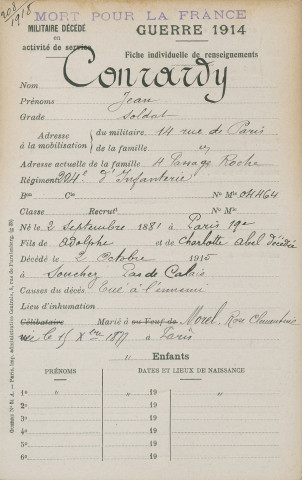 208
1915
MORT POUR LA FRANCE
MILITAIRE DÉCÉDÉ
en
activité de service
GUERRE 1914
Fiche individuelle de renseignements
Nom Conrardy
Prénoms Jean
Grade Soldat
Adresse à la mobilisation { du militaire. 14 rue de Paris
de la famille
Adresse actuelle de la famille 4 Passage Roche
Régiment 204e d'Infanterie
Bon Cie No Mle 
Classe Recrut No Mle
Né le 2 septembre 1881 à Paris 19e
Fils de Adolphe et de Charlotte Abel
Décédé le 2 Octobre 1915
à Souchez Pas de Calais
Causes du décès Tué à l'ennemi
Lieu d'inhumation
Célibataire Marié à ou Veuf de Morel, Rose Clémentine
née le 15 Xbre 1877 à Paris
Enfants
PRÉNOMS DATES ET LIEUX DE NAISSANCE
1o " " 19 "
2o 19
3o 19
4o 19
5o 19
6o 19